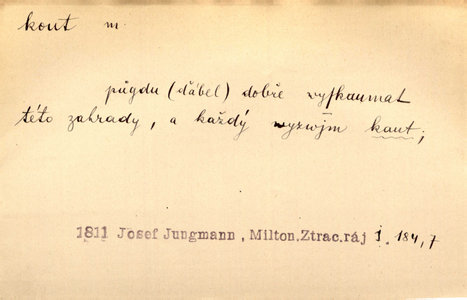 kout m.
půgdu (ďábel) dobře wyſkaumat
této zahrady, a každý wyzwjm kaut;
1811 Josef Jungmann, Milton.Ztrac.ráj I. 184,7